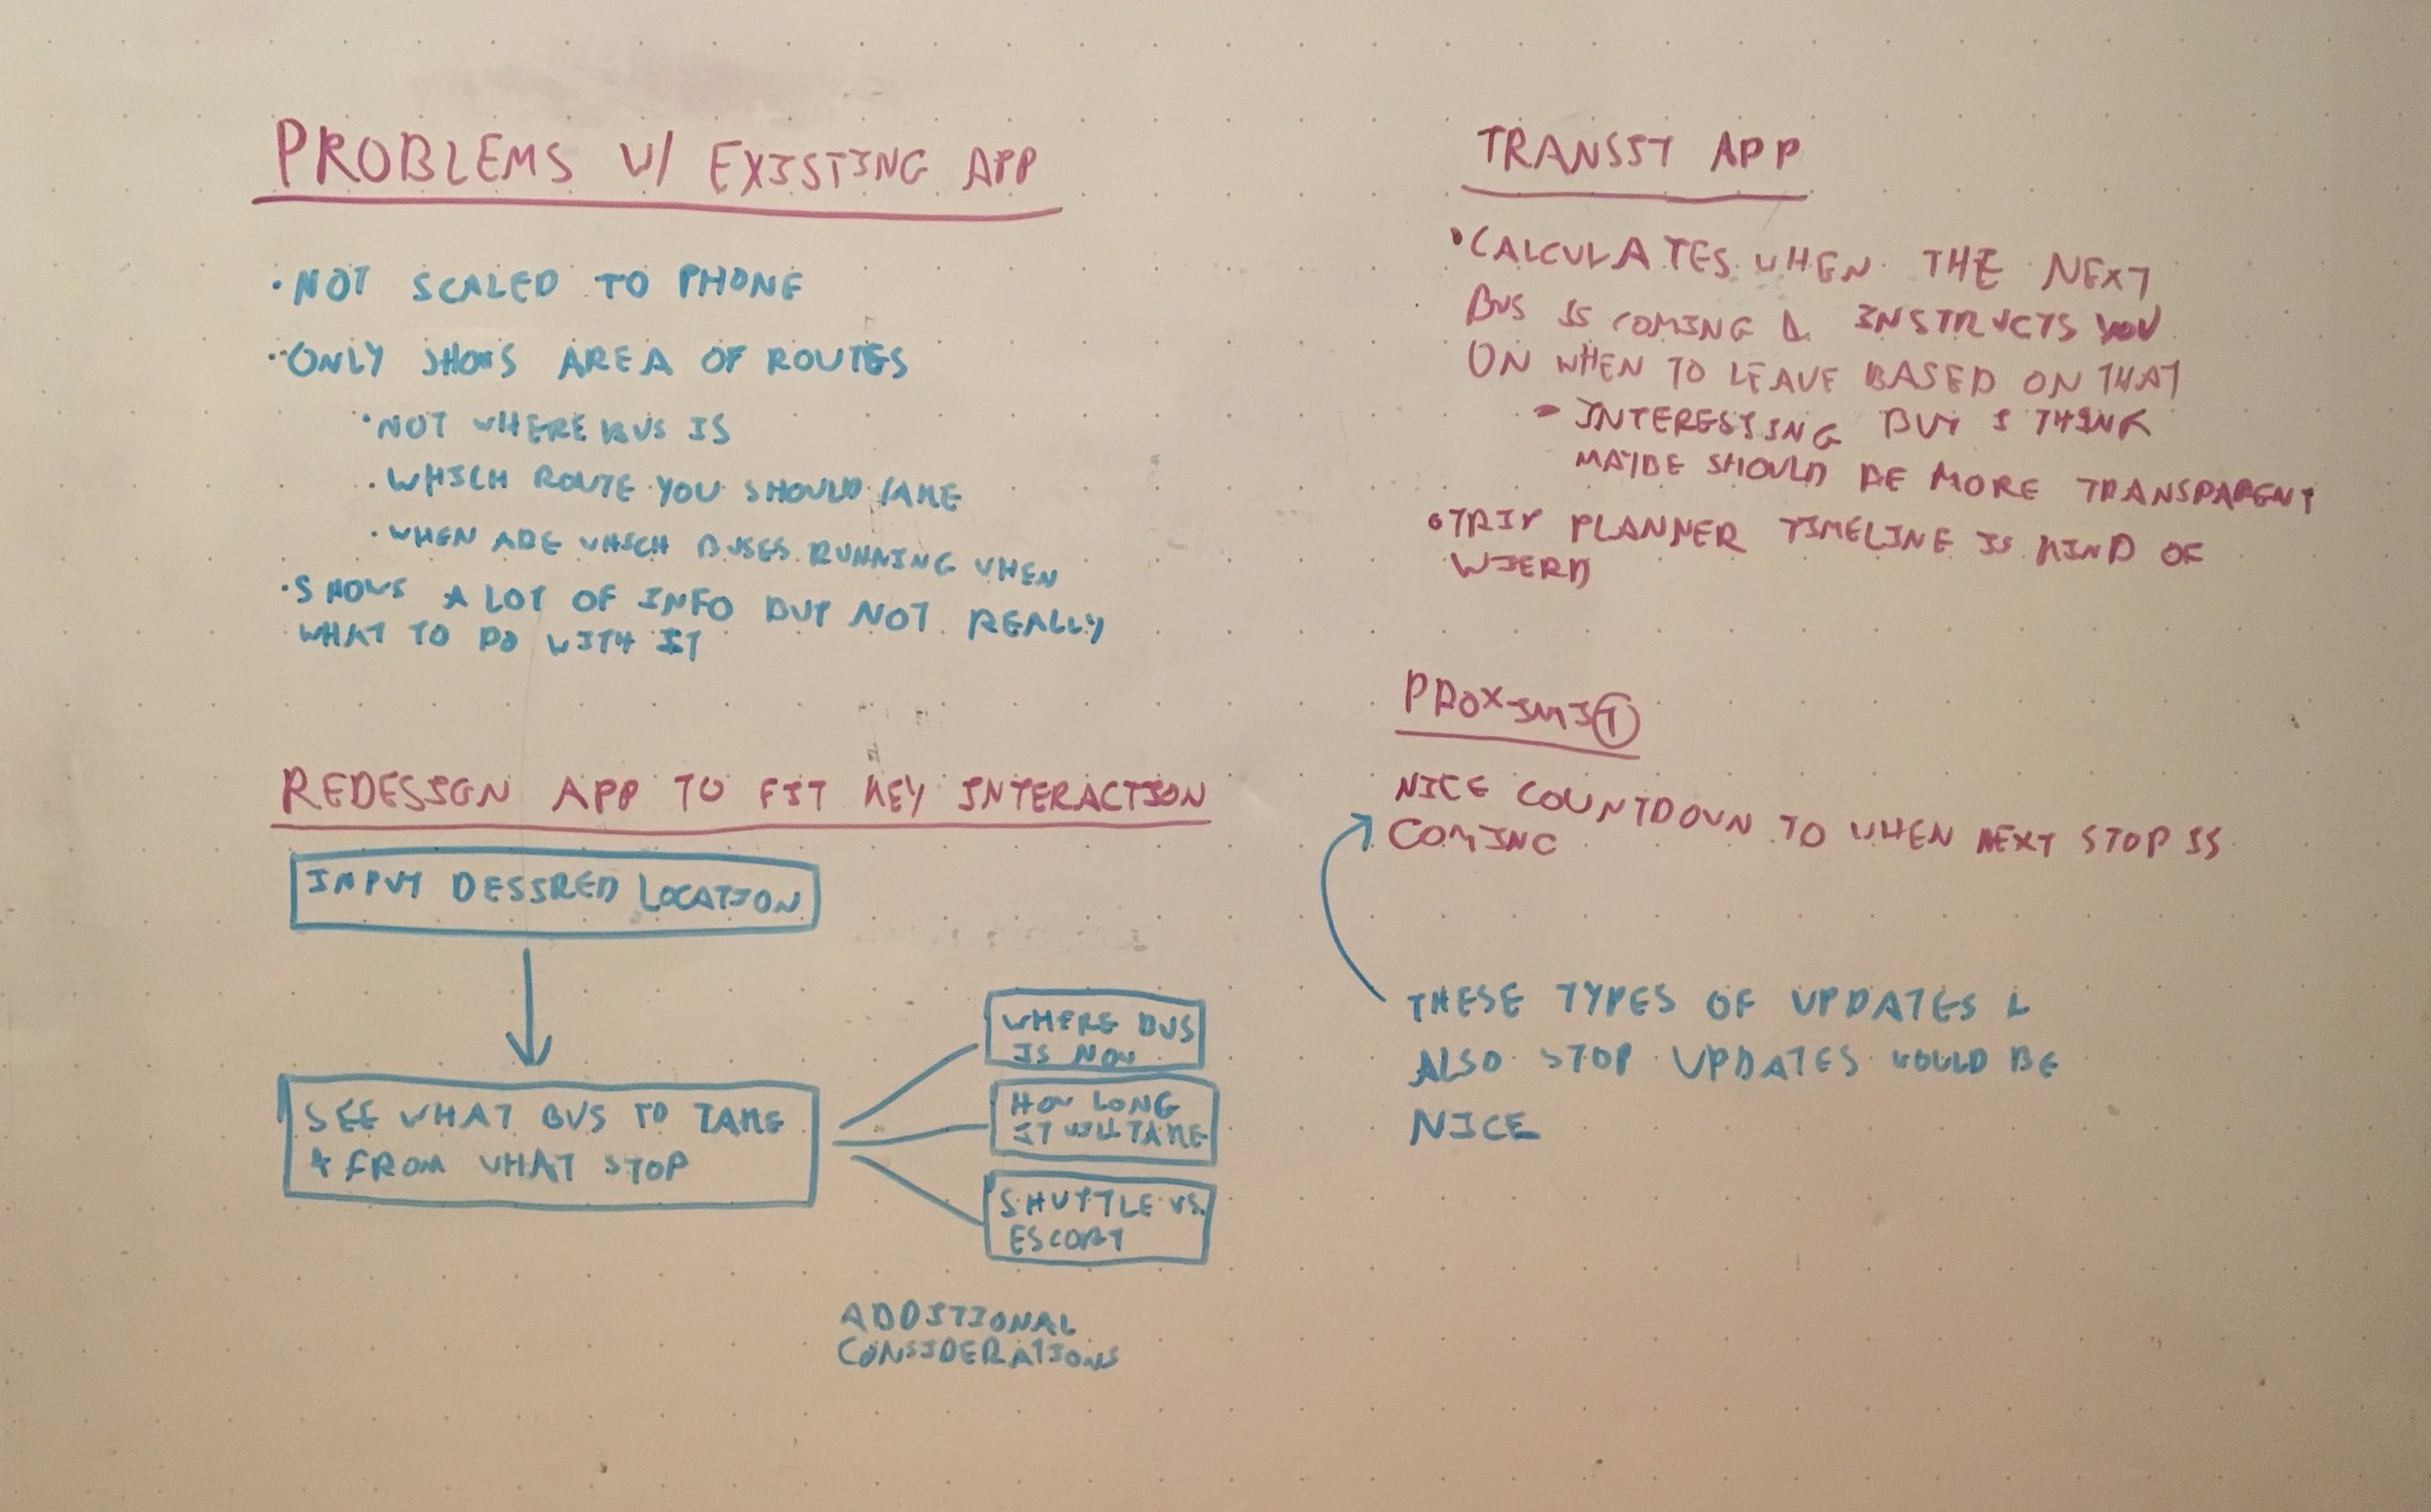 PROBLEMS W/ EXISTING APP
• NOT SCALED TO PHONE
• ONLY SHOWS AREA OF ROUTES
• NOT WHERE BUS IS
• WHICH ROUTE YOU SHOULD TAKE
• WHEN ARE WHICH BUSES RUNNING WHEN
• SHOWS A LOT OF INFO BUT NOT REALLY
WHAT TO DO WITH IT
REDESIGN APP TO FIT KEY INTERACTION
INPUT DESIRED LOCATION
SEE WHAT BUS TO TAKE
& FROM WHAT STOP
WHERE BUS
IS NOW
HOW LONG
IT WILL TAKE
SHUTTLE VS.
ESCORT
ADDITIONAL
CONSIDERATIONS
TRANSIT APP
• CALCULATES WHEN THE NEXT
BUS IS COMING & INSTRUCTS YOU
ON WHEN TO LEAVE BASED ON THAT
- INTERESTING BUT I THINK
MAYBE SHOULD BE MORE TRANSPARENT
• TRIP PLANNER TIMELINE IS KIND OF
WIERD
PROXIMIT
NICE COUNTDOWN TO WHEN NEXT STOP IS
COMING
THESE TYPES OF UPDATES &
ALSO STOP UPDATES WOULD BE
NICE